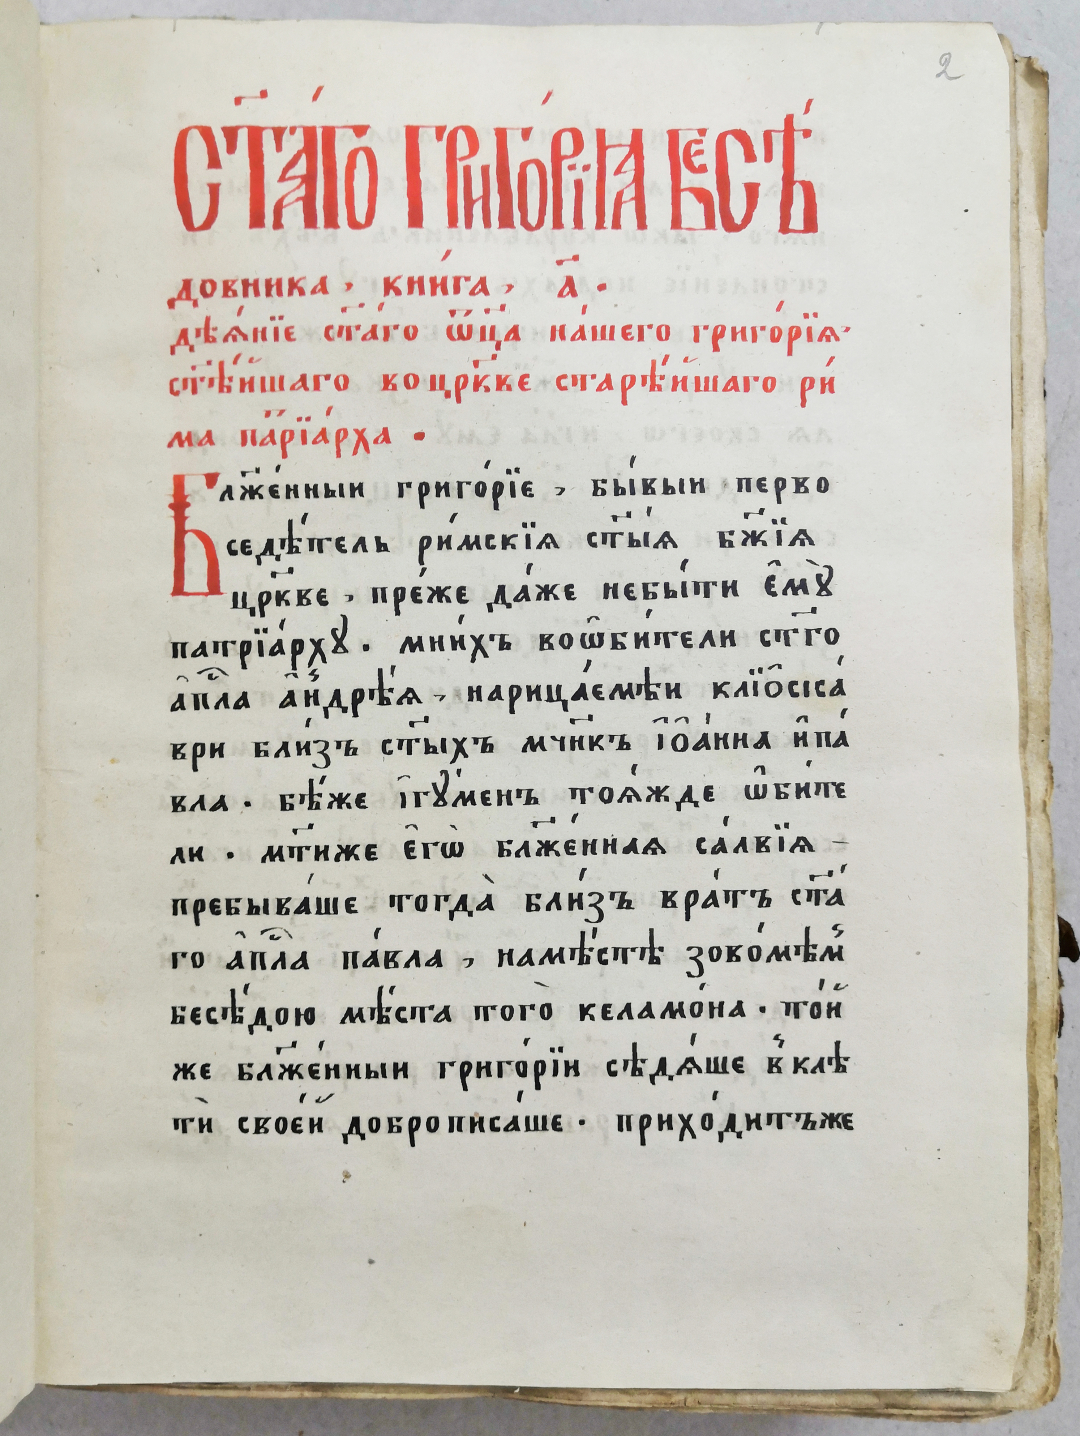 2
СТ҃А́ГО ГРИГО́РІЯ БЕСѢ́
довника, кни́га, а҃.
дѣѧ́нїе ст҃а́го ѿц҃а на́шего григо́рїѧ,
ст҃ѣ́йшаго воцр҃кве старѣ́йшаго ри́
ма па҃трїа́рха .
Бл҃же́нныи григо́рїе , бы́выи перво
седѣ́тель ри́мскїѧ ст҃ы́ѧ бж҃їѧ
цр҃кве , пре́же да́же небы́ти є҆мꙋ̀
патрїа́рхꙋ . мни́хъ воѡ҆би́тели ст҃го
а҆пⷭ҇ла а҆н̾дрѣ́ѧ , нарица́емѣи клїо҆сіса́
ври бли́зъ ст҃ы́хъ мч҃нкъ і҆о҆а́нна и҆па́
вла . бѣ́же і҆гꙋ́менъ тоѧ́жде ѡ҆би́те
ли . мт҃иже є҆гѡ̀ бл҃же́ннаѧ са́лвїѧ
пребыва́ше тогда̀ бли́зъ вра́тъ ст҃а́
го а҆пⷭ҇ла па́вла , намѣ́стѣ зово́мѣм̾
бесѣ́дою мѣ́ста того̀ келамо́на . то́й
же бл҃же́нныи григо́рїи сѣдѧ́ше в̾клѣ
тѝ свое́й доброписа́ше . прихо́дитъже